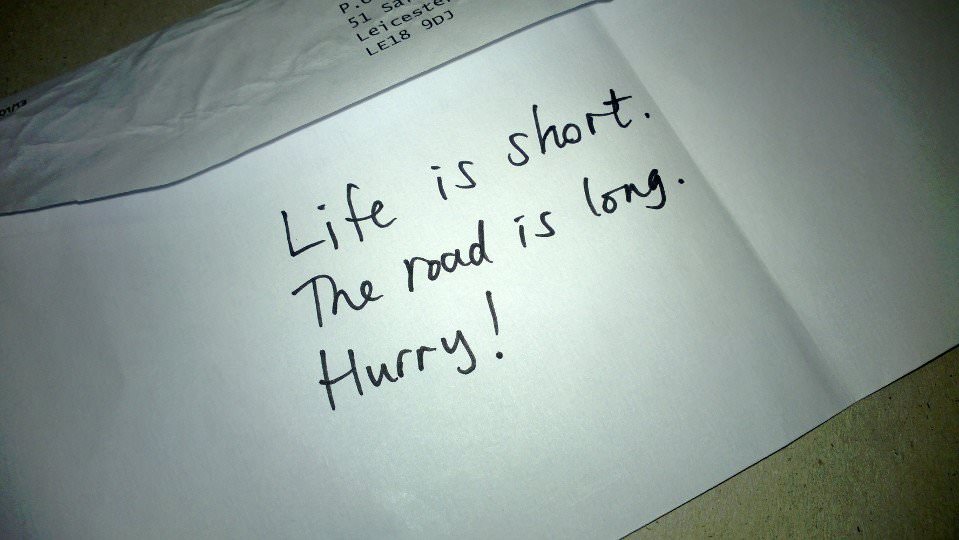 51
Leicester
LE18 9DJ
01/13
Life is short.
The road is long.
Hurry!